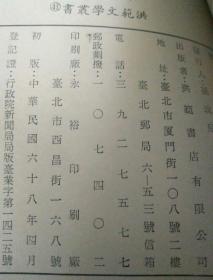 洪範文學叢書㊶
發行人：
出版者：洪範書店有限公司
地 址：臺北市廈門街一〇八號二樓
臺北郵局六—五三號信箱
電 話：三九二七五七七
郵政劃撥：一〇七四〇二
印刷廠：永裕印刷廠
臺北市西昌街一六八號
初 版：中華民國六十八年四月
登記證：行政院新聞局局版臺業字第一四二五號